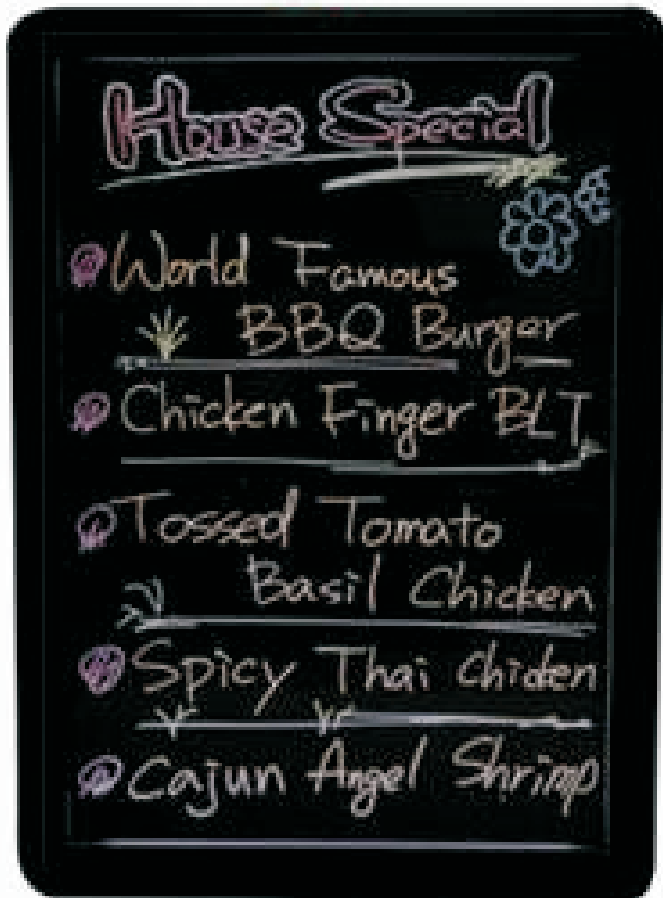 House Special
World Famous
BBQ Burger
Chicken Finger BLT
Tossed Tomato
Basil Chicken
Spicy Thai Chiden
Cajun Angel Shrimp